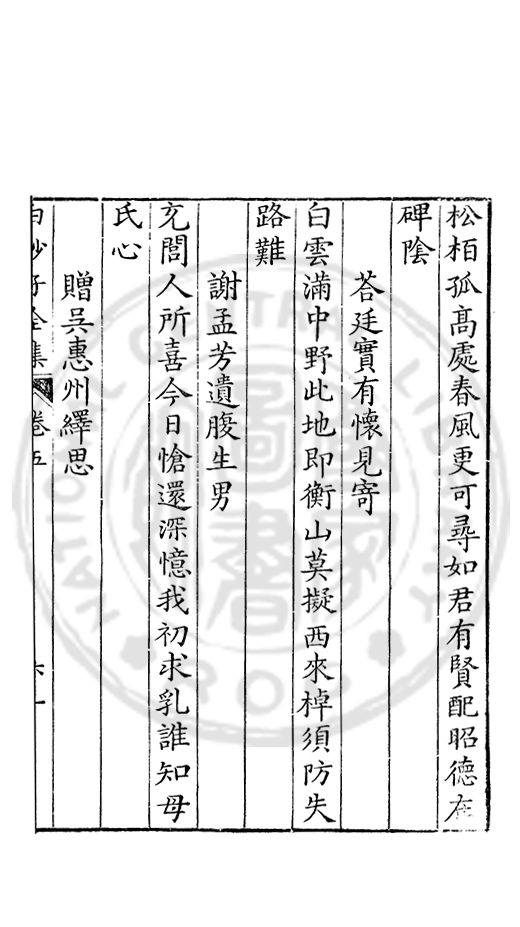 松栢孤高處春風更可尋如君有賢配昭德在
碑陰
荅廷實有懷見寄
白雲滿中野此地即衡山莫擬西來棹須防失
路難
謝孟芳遺腹生男
充閭人所喜今日愴還深憶我初求乳誰知母
氏心
贈吳惠州繹思
白沙子全集 卷五